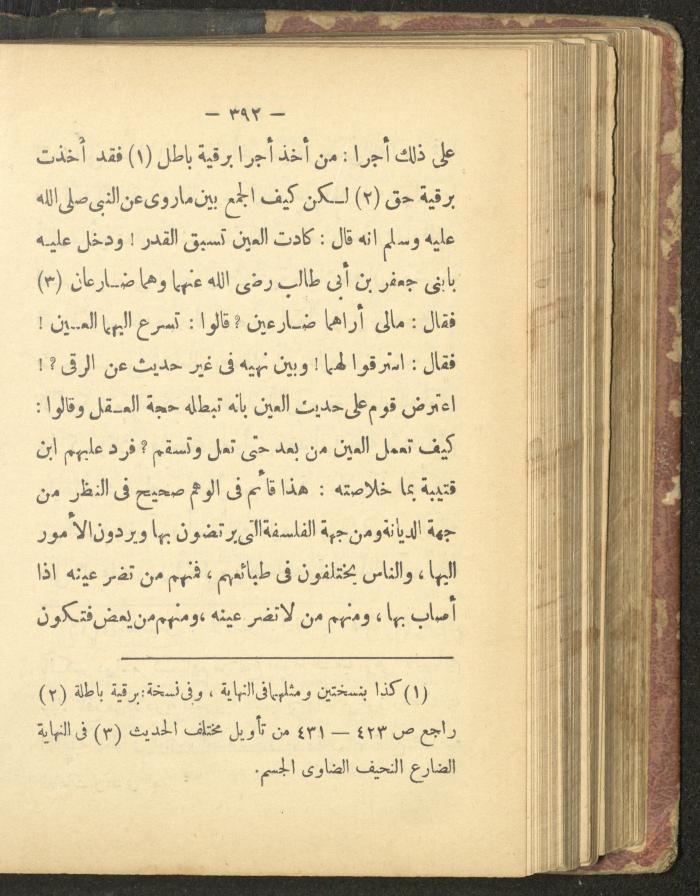 — ٣٩٢ —
على ذلك أجرا : من أخذ أجرا برقية باطل (١) فقد أخذت
برقية حق (٢) لكن كيف الجمع بين ماروى عن النبى صلى الله
عليه وسلم انه قال : كادت العين تسبق القدر ! ودخل عليه
بابنى جعفر بن أبى طالب رضى الله عنهما وهما ضارعان (٣)
فقال : مالى أراهما ضارعين ? قالوا : تسرع اليهما العين !
فقال : استرقوا لهما ! وبين نهيه فى غير حديث عن الرقى ? !
اعترض قوم على حديث العين بانه تبطله حجة العقل وقالوا :
كيف تعمل العين من بعد حتى تعل وتسقم ? فرد عليهم ابن
قتيبة بما خلاصته : هذا قائم فى الوهم صحيح فى النظر من
جهة الديانة ومن جهة الفلسفة التى يرتضون بها ويردون الأمور
اليها ، والناس يختلفون فى طبائعهم ، فمنهم من تضر عينه اذا
أصاب بها ، ومنهم من لاتضر عينه ، ومنهم من يعض فتكون
(١) كذا بنسختين ومثلهما فى النهاية ، وفى نسخة : برقية باطلة (٢)
راجع ص ٤٢٣ — ٤٣١ من تأويل مختلف الحديث (٣) فى النهاية
الضارع النحيف الضاوى الجسم.